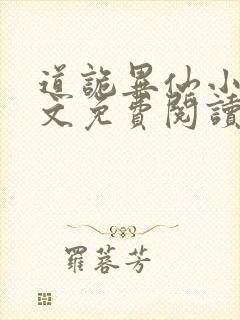 道詭異仙小
文免費閱讀
羅蓉芳